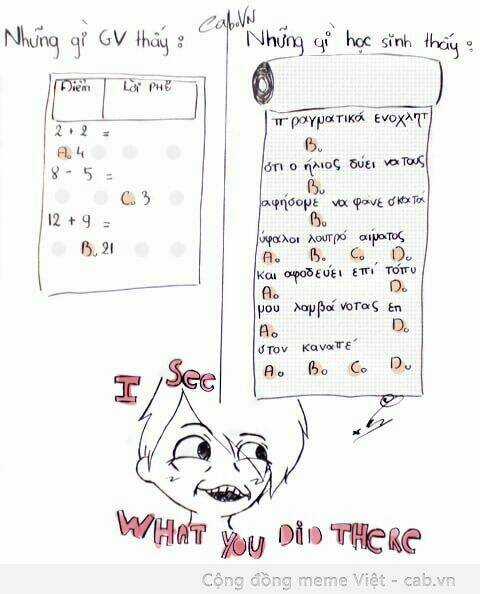 Những gì GV thấy :
Điểm
Lời PHÊ
2 + 2 =
A. 4
8 - 5 =
C. 3
12 + 9 =
B. 21
Cab.VN
Những gì học sinh thấy :
πραγματικά ενοχλητ
B.
ότι ο ήλιος δύει να τους
B.
αφήσομε να φανε σκατά
B.
ύφαλοι λουτρό αίματος
A. B. C. D.
και αφοδεύει επί τόπυ
A. D.
μου λαμβά νοτας εп
A. D.
στον καναπέ
A. B. C. D.
I See
WHAT YOU DiD THERE
Cộng đồng meme Việt - cab.vn